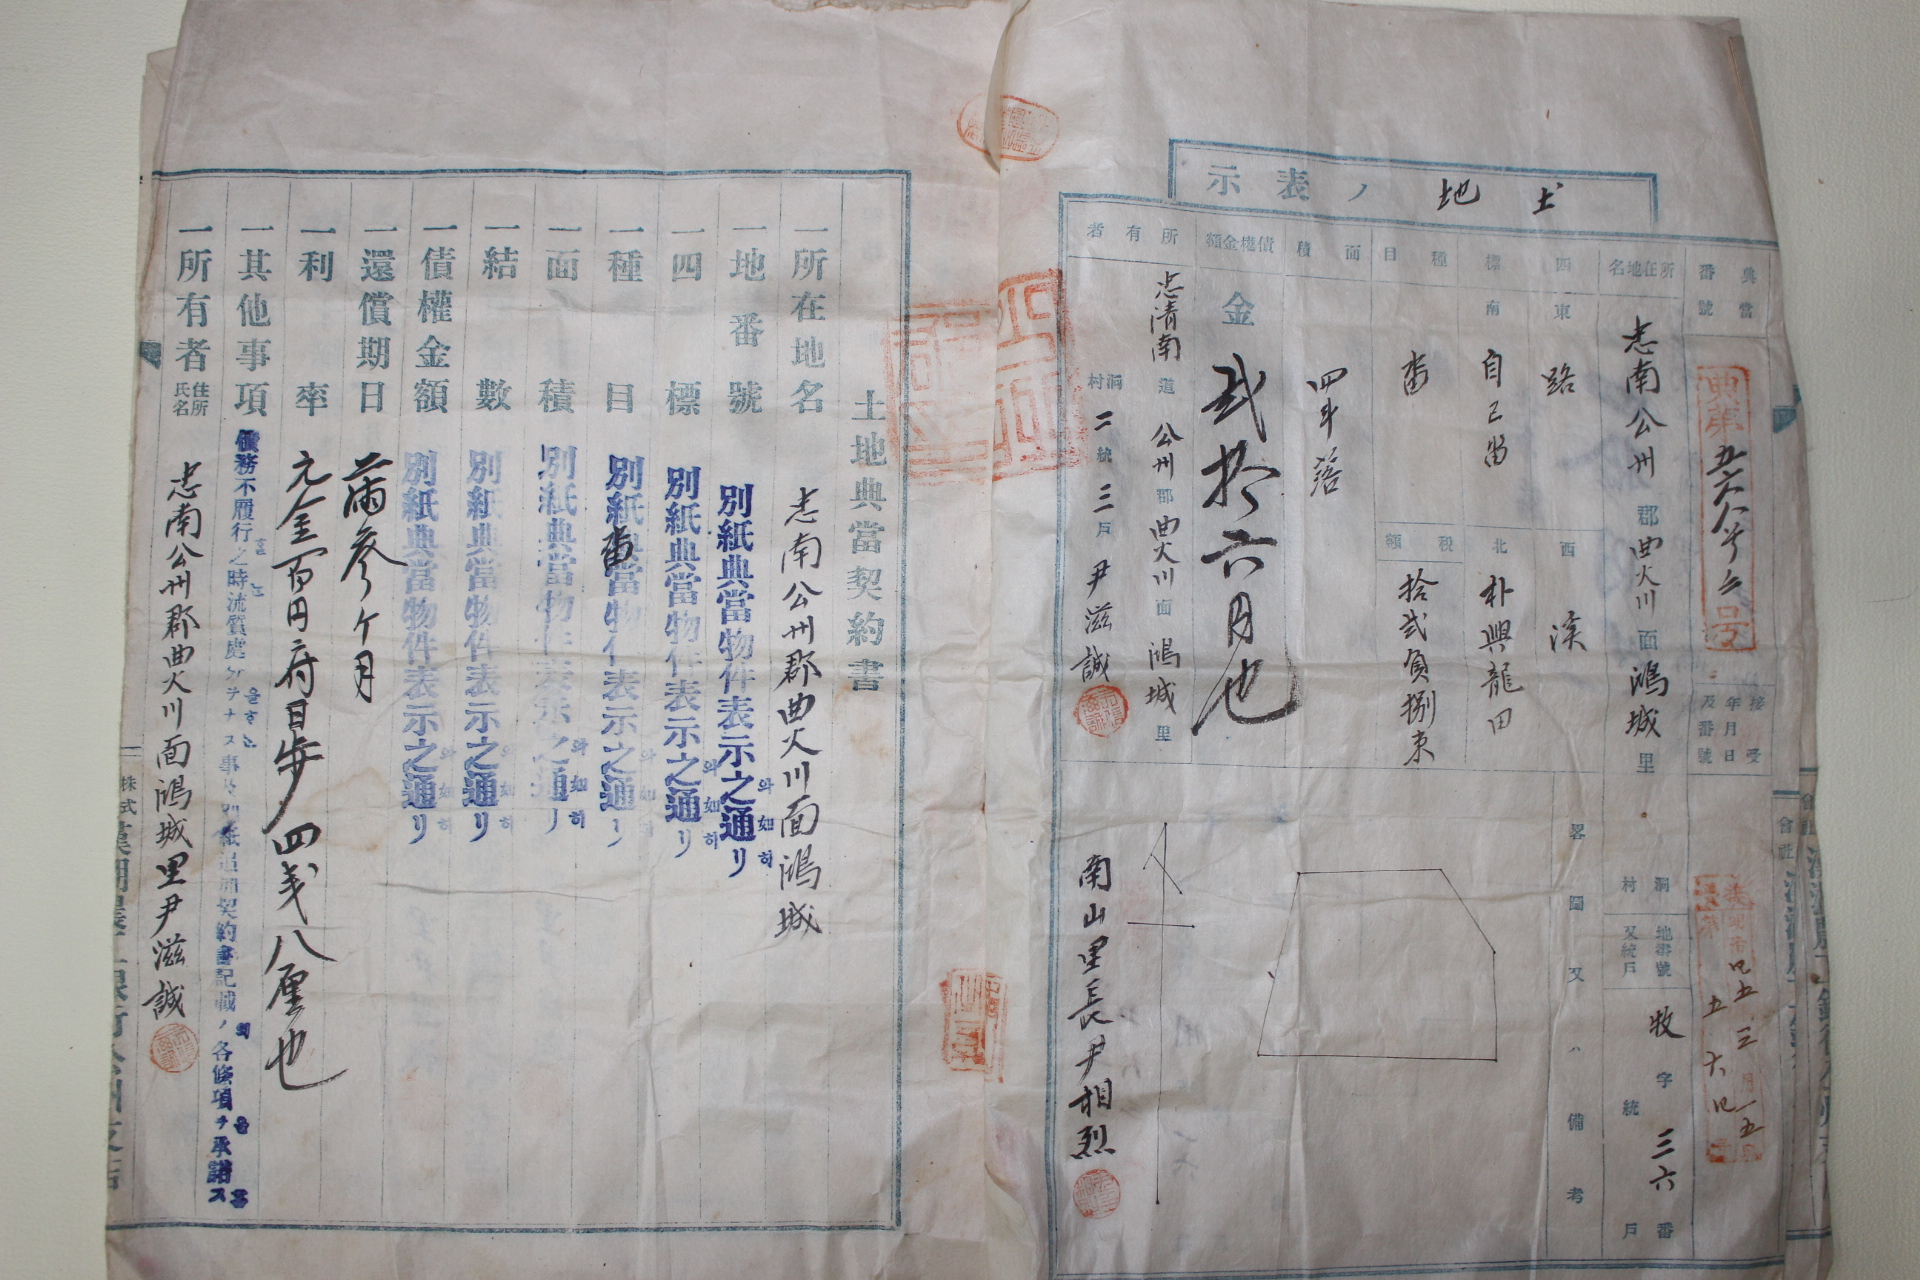 土地ノ表示
典當番號
典第五六八号ノ六号
接受年月日及番號
所在地名
忠南公州郡曲火川面鴻城里
洞村
地番號又統戶
牧字三六番
統戶
四標
東 路
西 渓
南 自己畓
北 朴興龍田
種目
畓
稅額
拾貳負捌束
面積
四斗落
債權金額
金貳拾六円也
所有者
忠清南道公州郡曲火川面鴻城里
洞村二統三戶尹滋誠
畧圖又ハ備考
南山里長尹相烈
土地典當契約書
一所在地名 忠南公州郡曲火川面鴻城
一地番號 別紙典當物件表示之通リ
와如히
一四標 別紙典當物件表示之通リ
와如히
一種目 畓 別紙典當物件表示之通リ
와如히
一面積 別紙典當物件表示之通リ
와如히
一結數 別紙典當物件表示之通リ
와如히
一債權金額 別紙典當物件表示之通リ
와如히
一還償期日 滿參ケ月
一利率 元金百円府日歩四戔八厘也
一其他事項 債務不履行之時流質處分ヲナス事 契約書記載ノ各條項ヲ承諾ス
一所有者住所氏名 忠南公州郡曲火川面鴻城里尹滋誠
株式